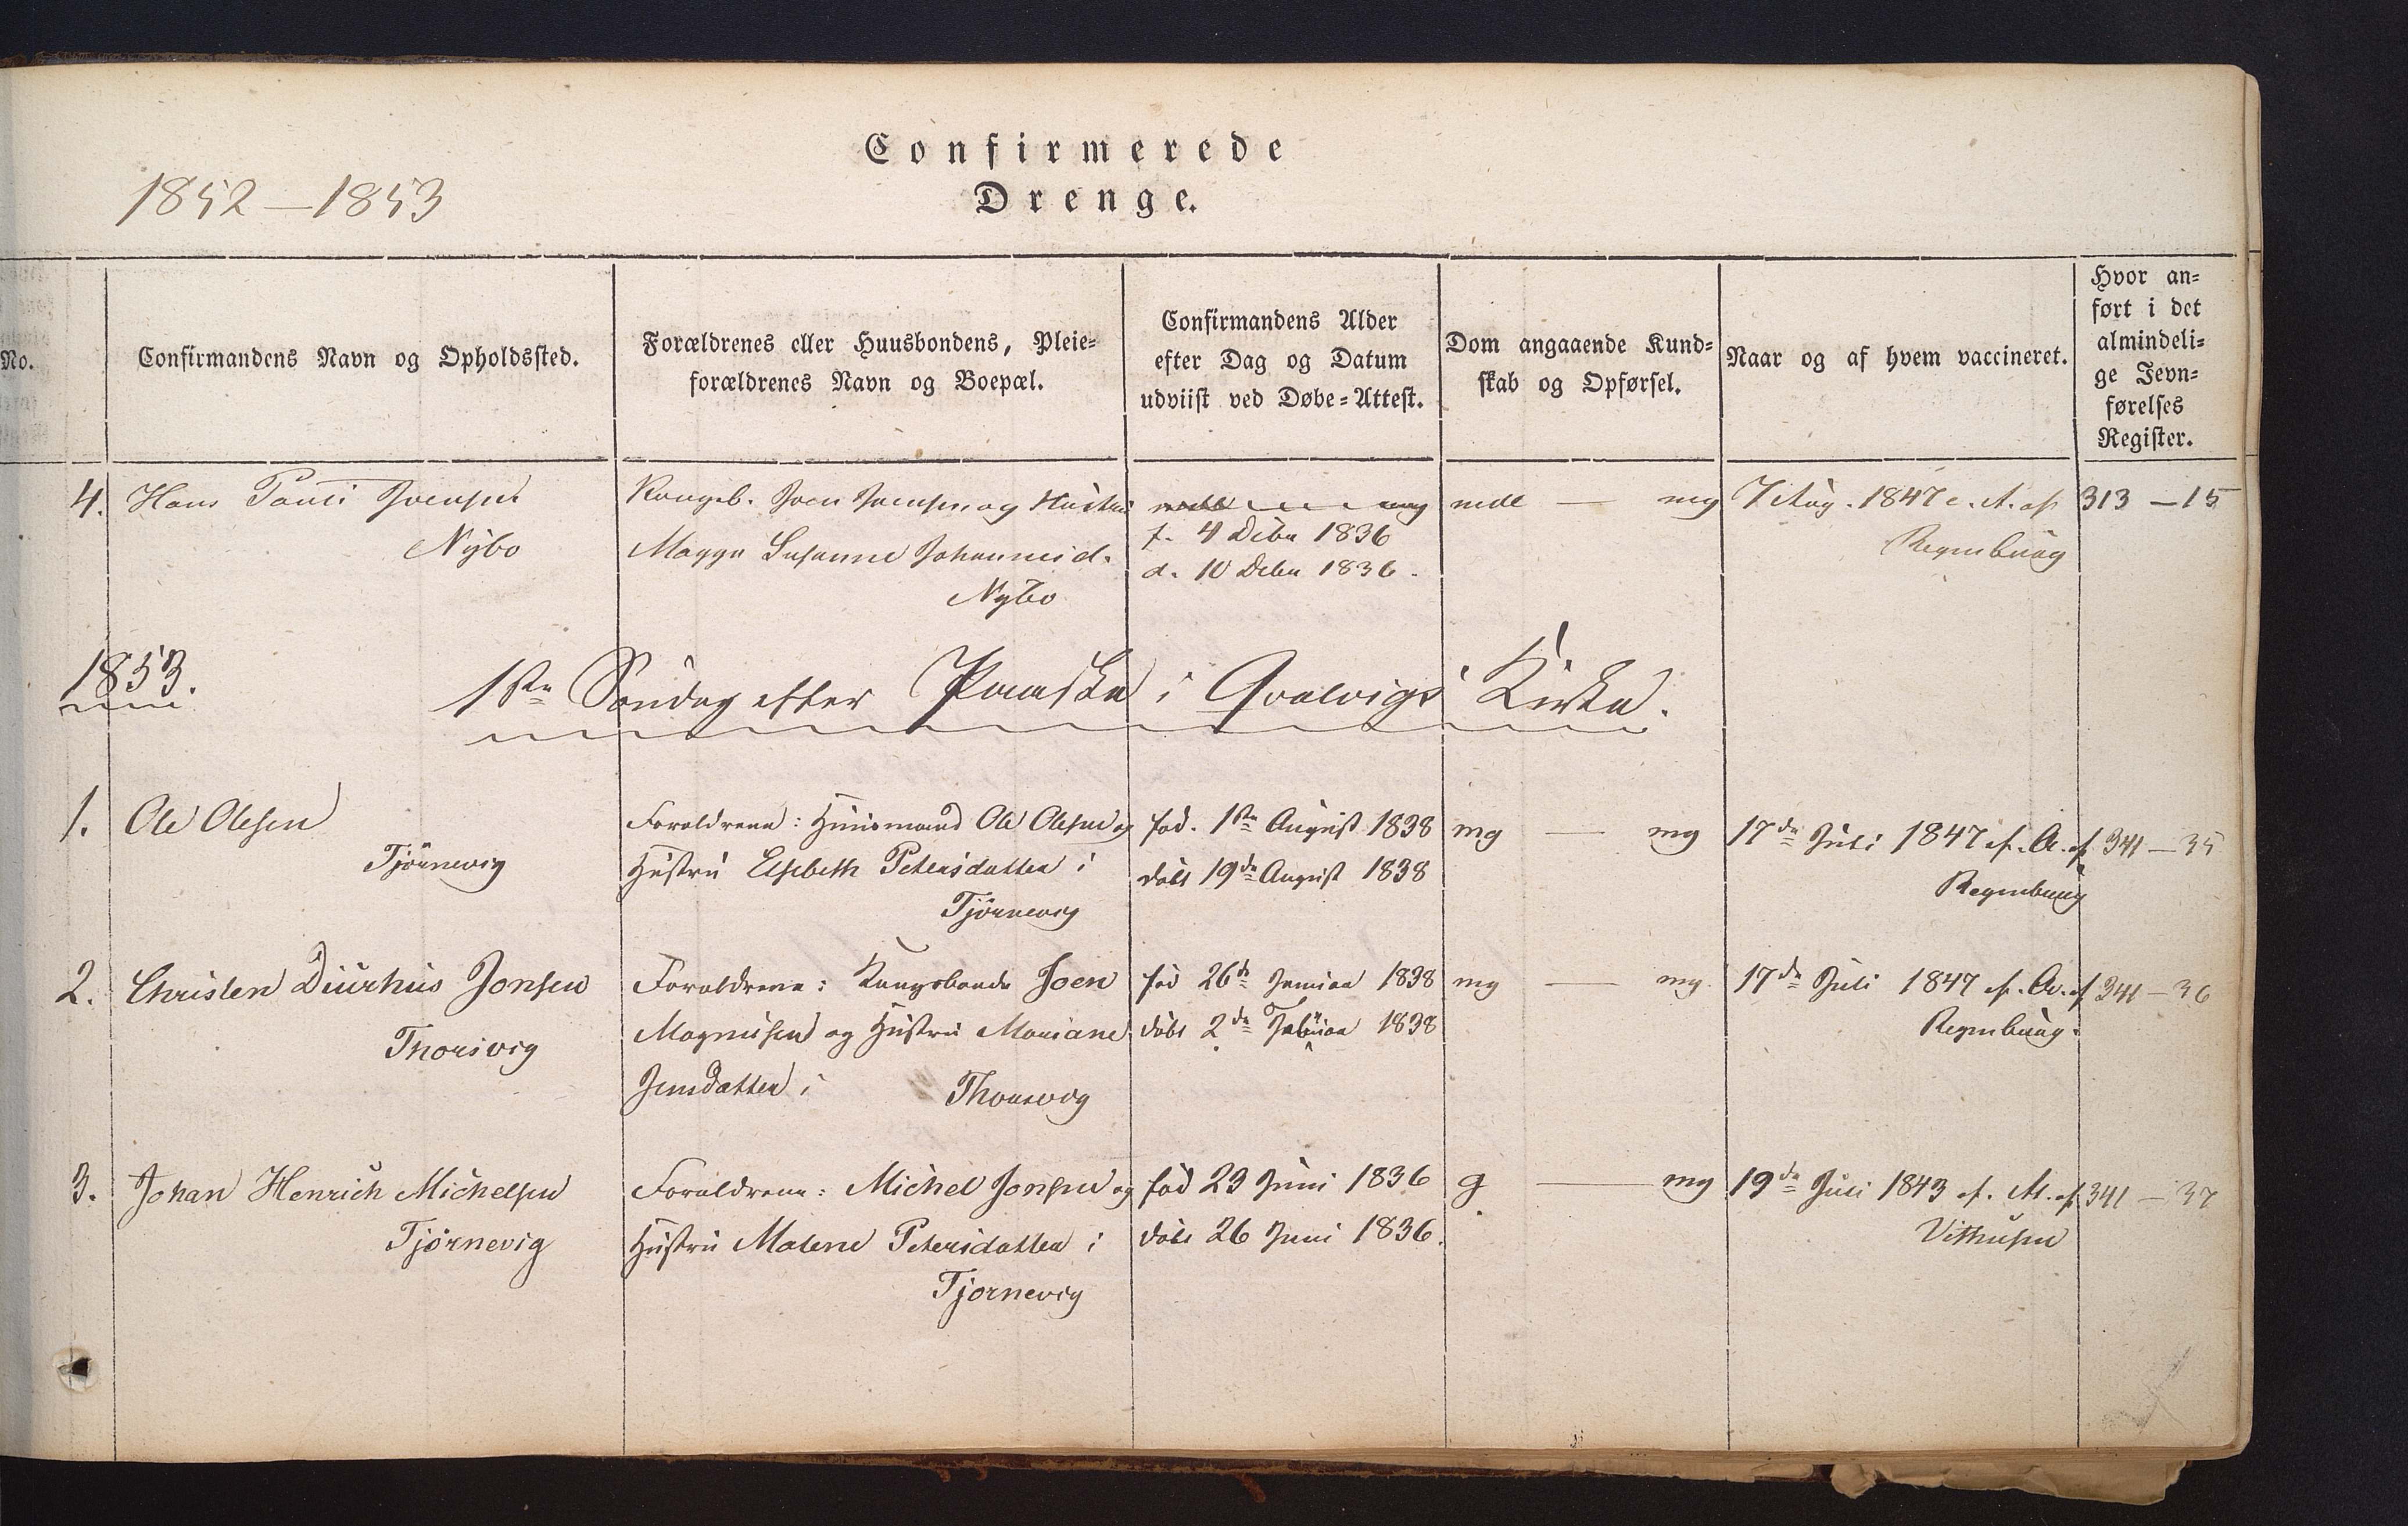 Confirmerede
1852 — 1853
Drenge.
No.
Confirmandens Navn og Opholdssted.
Forældrenes eller Huusbondens, Pleie-
forældrenes Navn og Boepæl.
Confirmandens Alder
efter Dag og Datum
udviist ved Døbe-Attest.
Dom angaaende Kund-
skab og Opførsel.
Naar og af hvem vaccineret.
Hvor an-
ført i det
almindeli-
ge Jevn-
førelses
Register.
4. Hans Pauli Joensen
Nybo
Kongsb. Joen Joensen og Hustru
Magga Susanne Johannesd.
Nybo
f. 4 Debr 1836
d. 10 Debr 1836.
mdl — mg
7 Aug. 1847 e. A. af
Regenburg
313 — 15
1853.
1ste Søndag efter Paaske i Qvalvigs Kirke.
1. Ole Olesen
Tjörnevig
Forældrene: Huusmand Ole Olesen og
Hustru Elsebeth Petersdatter i
Tjörnevig
fød. 1ste August 1838
döbt 19de August 1838
mg — mg
17de Juli 1847 e. A. af
Regenburg
341 — 35
2. Christen Diurhuus Jonsen
Thorsvig
Forældrene: Kongsbonde Joen
Magnusen og Hustru Mariane
Jensdatter i
Thorsvig
fød 26de Januar 1838
döbt 2de Februar 1838
mg — mg.
17de Juli 1847 e. A. af
Regenburg.
341 — 36
3. Johan Henrich Michelsen
Tjørnevig
Forældrene: Michel Jonsen og
Hustru Malene Petersdatter i
Tjørnevig
fød 23 Juni 1836
döbt 26 Juni 1836.
g — mg
19de Juli 1843 e. A. af
341 — 37